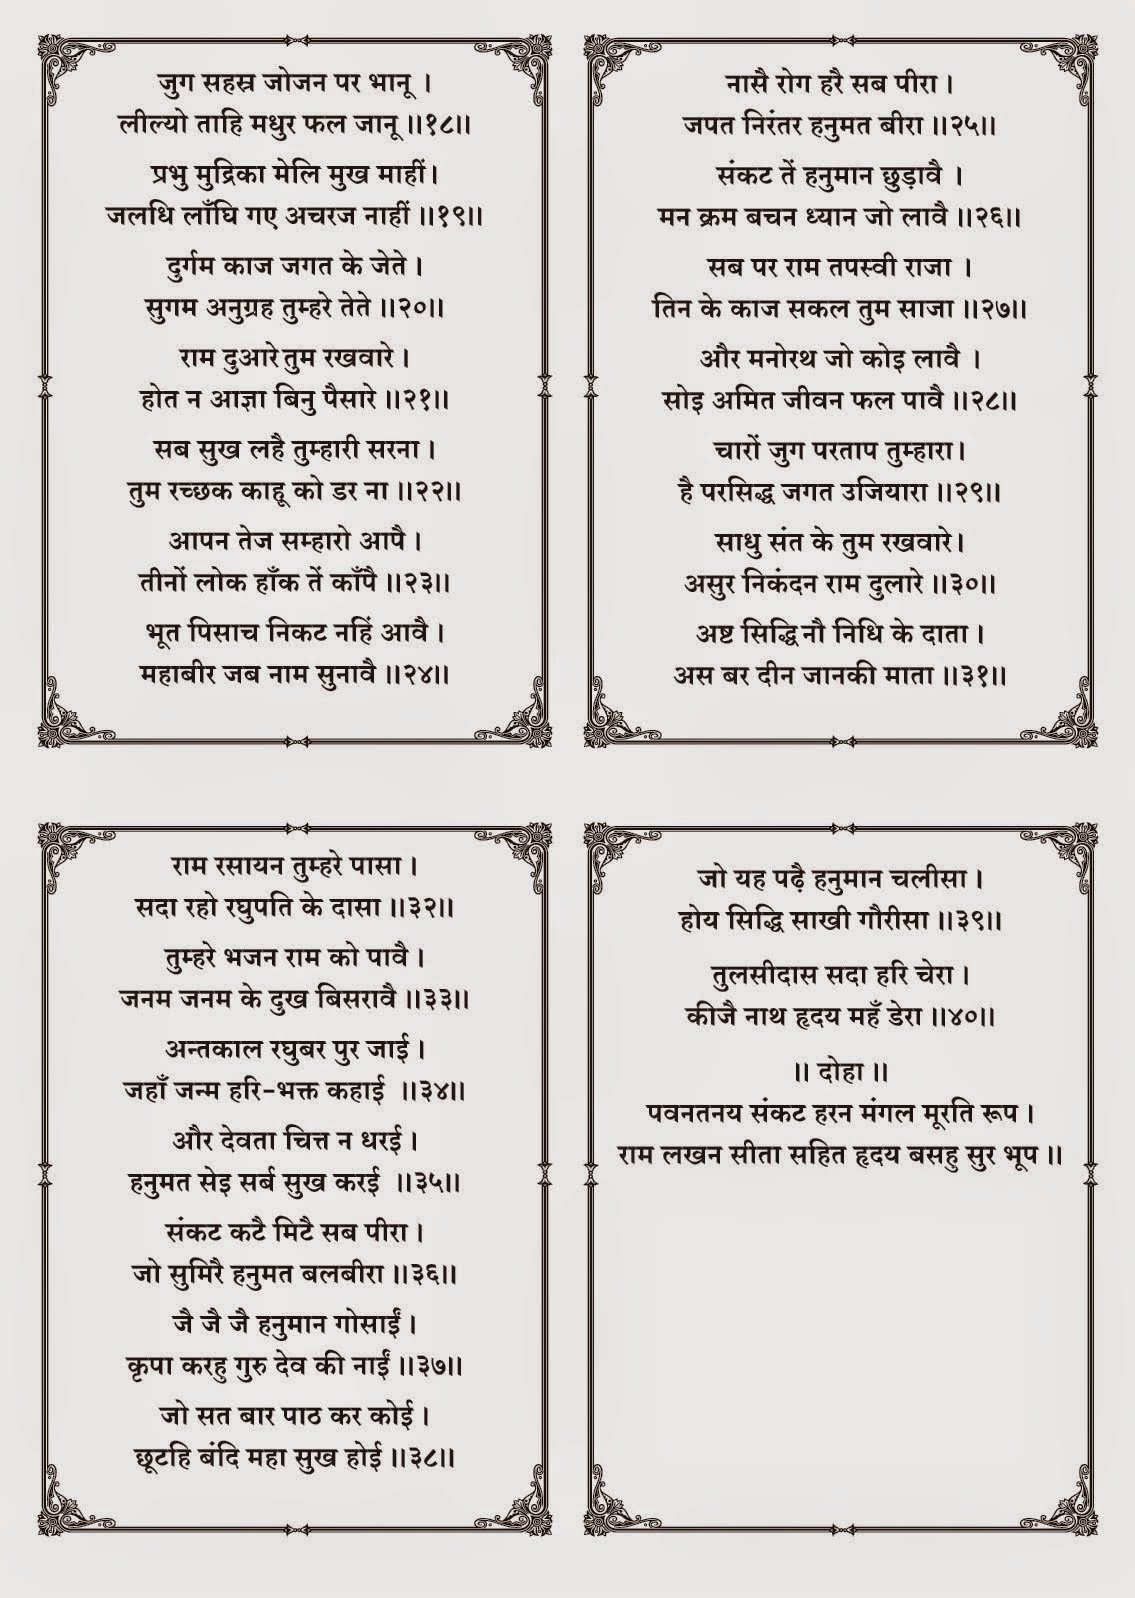 जुग सहस्र जोजन पर भानू ।
लील्यो ताहि मधुर फल जानू ॥१८॥
प्रभु मुद्रिका मेलि मुख माहीं।
जलधि लाँघि गए अचरज नाहीं ॥१९॥
दुर्गम काज जगत के जेते ।
सुगम अनुग्रह तुम्हरे तेते ॥२०॥
राम दुआरे तुम रखवारे ।
होत न आज्ञा बिनु पैसारे ॥२१॥
सब सुख लहै तुम्हारी सरना ।
तुम रच्छक काहू को डर ना ॥२२॥
आपन तेज सम्हारो आपै ।
तीनों लोक हाँक तें काँपै ॥२३॥
भूत पिसाच निकट नहिं आवै ।
महाबीर जब नाम सुनावै ॥२४॥
नासै रोग हरै सब पीरा ।
जपत निरंतर हनुमत बीरा ॥२५॥
संकट तें हनुमान छुड़ावै ।
मन क्रम बचन ध्यान जो लावै ॥२६॥
सब पर राम तपस्वी राजा ।
तिन के काज सकल तुम साजा ॥२७॥
और मनोरथ जो कोइ लावै ।
सोइ अमित जीवन फल पावै ॥२८॥
चारों जुग परताप तुम्हारा।
है परसिद्ध जगत उजियारा ॥२९॥
साधु संत के तुम रखवारे।
असुर निकंदन राम दुलारे ॥३०॥
अष्ट सिद्धि नौ निधि के दाता ।
अस बर दीन जानकी माता ॥३१॥
राम रसायन तुम्हरे पासा ।
सदा रहो रघुपति के दासा ॥३२॥
तुम्हरे भजन राम को पावै ।
जनम जनम के दुख बिसरावै ॥३३॥
अन्तकाल रघुबर पुर जाई ।
जहाँ जन्म हरि-भक्त कहाई ॥३४॥
और देवता चित्त न धरई ।
हनुमत सेइ सर्ब सुख करई ॥३५॥
संकट कटै मिटै सब पीरा ।
जो सुमिरै हनुमत बलबीरा ॥३६॥
जै जै जै हनुमान गोसाईं ।
कृपा करहु गुरु देव की नाईं ॥३७॥
जो सत बार पाठ कर कोई ।
छूटहि बंदि महा सुख होई ॥३८॥
जो यह पढ़ै हनुमान चलीसा ।
होय सिद्धि साखी गौरीसा ॥३९॥
तुलसीदास सदा हरि चेरा ।
कीजै नाथ हृदय महँ डेरा ॥४०॥
॥ दोहा ॥
पवनतनय संकट हरन मंगल मूरति रूप ।
राम लखन सीता सहित हृदय बसहु सुर भूप ॥